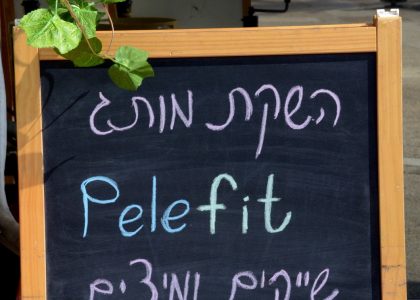 השקת מותג
Pelefit
שייקים ומיצים